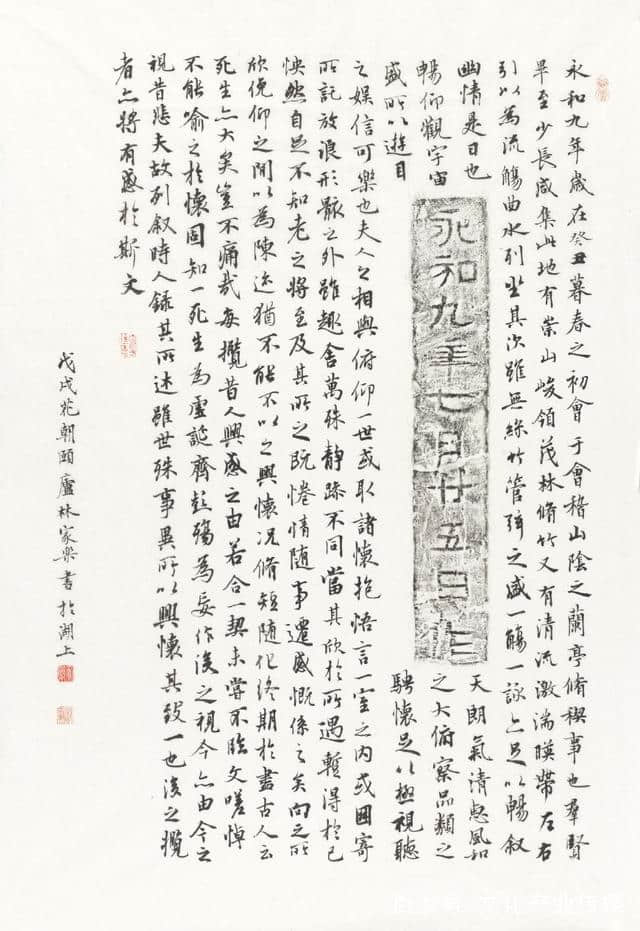 永和九年歲在癸丑暮春之初會于會稽山陰之蘭亭脩稧事也羣賢
畢至少長咸集此地有崇山峻領茂林脩竹又有清流激湍暎帶左右
引以為流觴曲水列坐其次雖無絲竹管弦之盛一觴一詠亦足以暢敘
幽情是日也天朗氣清惠風和
暢仰觀宇宙之大俯察品類之
盛所以遊目騁懷足以極視聽
永和九年七月廿五日作
之娛信可樂也夫人之相與俯仰一世或取諸懷抱悟言一室之內或因寄
所託放浪形骸之外雖趣舍萬殊靜躁不同當其欣於所遇暫得於己
怏然自足不知老之將至及其所之既惓情隨事遷感慨係之矣向之所
欣俛仰之間以為陳迹猶不能不以之興懷況脩短隨化終期於盡古人云
死生亦大矣豈不痛哉每攬昔人興感之由若合一契未嘗不臨文嗟悼
不能喻之於懷固知一死生為虛誕齊彭殤為妄作後之視今亦由今之
視昔悲夫故列敘時人錄其所述雖世殊事異所以興懷其致一也後之攬
者亦將有感於斯文
戊戌花朝頤廬林家樂書於湖上